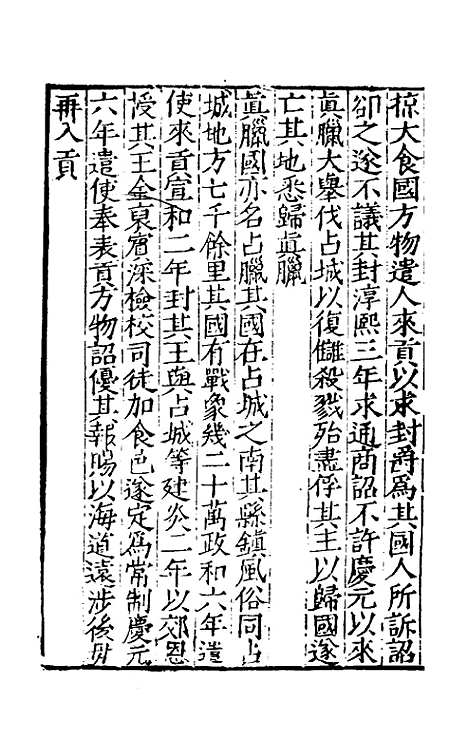 掠大食國方物遣人來貢以求封爵爲其國人所訴詔
卻之遂不議其封淳熙三年求通商詔不許慶元以來
眞臘大舉伐占城以復讎殺戮殆盡俘其主以歸國遂
亡其地悉歸眞臘
眞臘國亦名占臘其國在占城之南其縣鎮風俗同占
城地方七千餘里其國有戰象幾二十萬政和六年遣
使來貢宣和二年封其王與占城等建炎二年以郊恩
授其王金裒賓深檢校司徒加食邑遂定爲常制慶元
六年遣使奉表貢方物詔優其報賜以海道遠涉後毋
再入貢